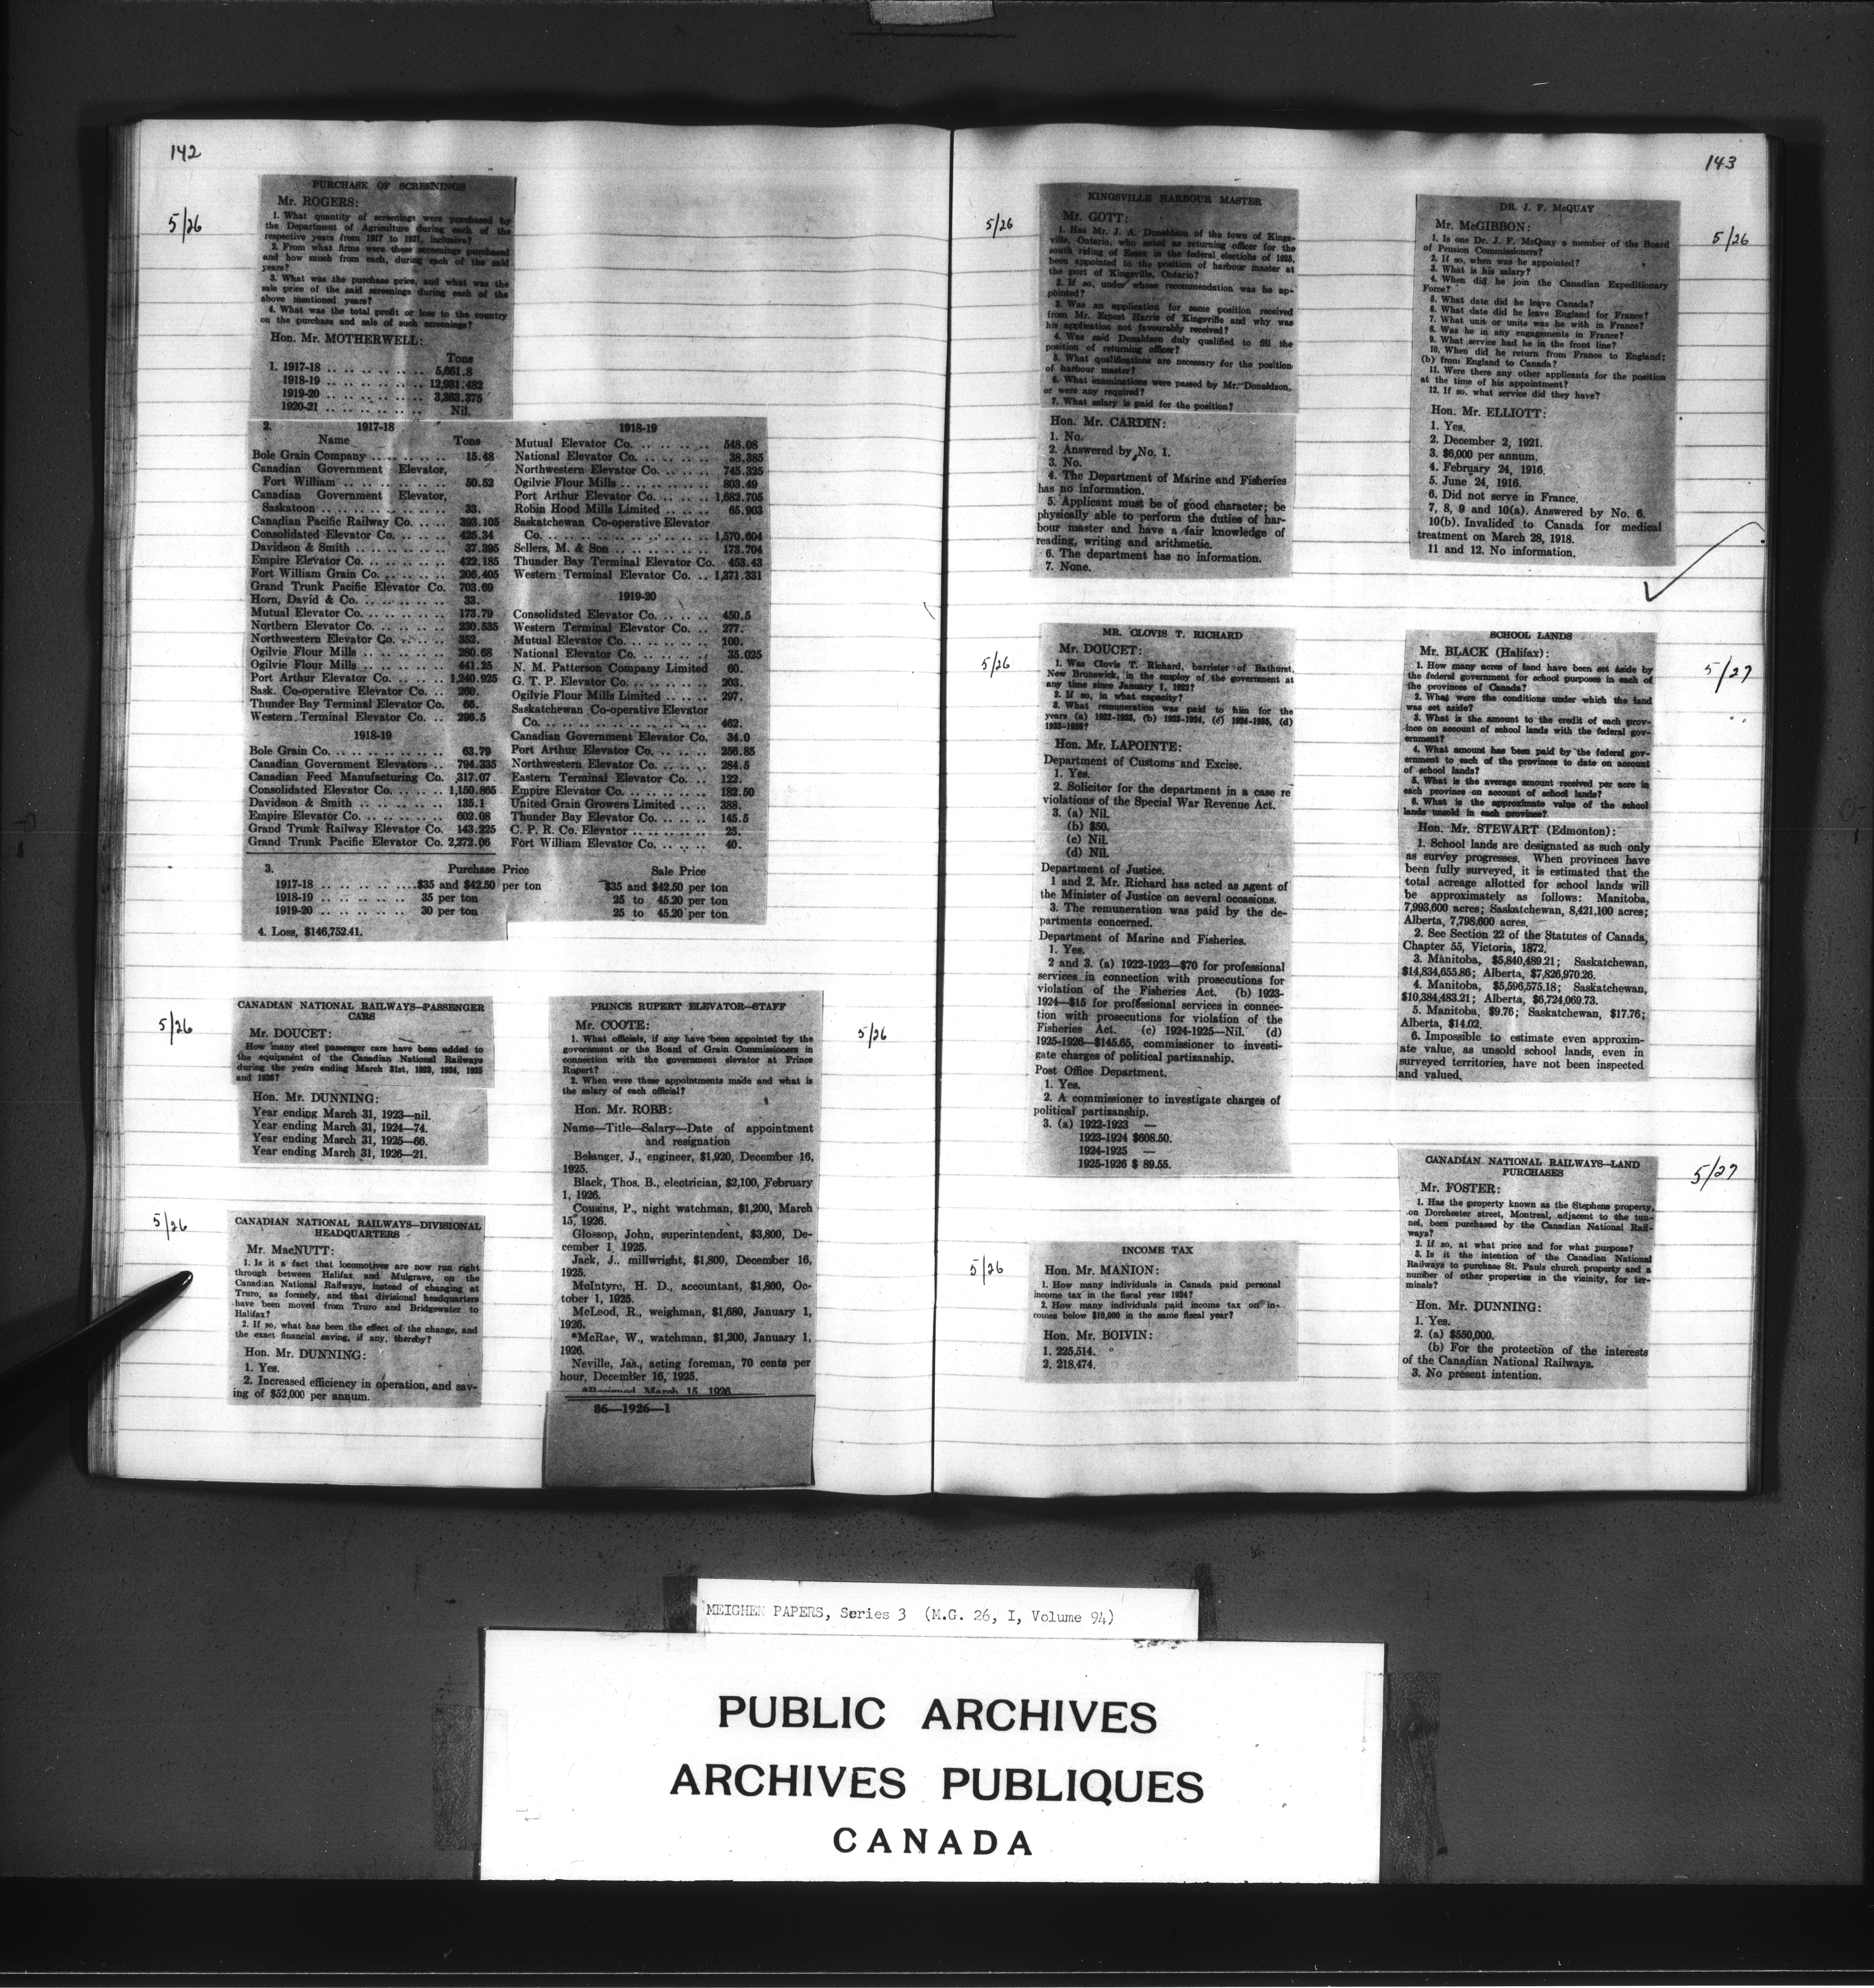 142
5/26
PURCHASE OF SCREENINGS
Mr. ROGERS:
1. What quantity of screenings were purchased by
the Department of Agriculture during each of the
respective years from 1917 to 1921, inclusive?
2. From what firms were these screenings purchased
and how much from each, during each of the said
years?
3. What was the purchase price, and what was the
sale price of the said screenings during each of the
above mentioned years?
4. What was the total profit or loss to the country
on the purchase and sale of such screenings?
Hon. Mr. MOTHERWELL:
Tons
1. 1917-18 .. .. .. .. .. .. .. 5,661.8
1918-19 .. .. .. .. .. .. .. 12,931.482
1919-20 .. .. .. .. .. .. .. 3,263.375
1920-21 .. .. .. .. .. .. .. Nil.
2. 1917-18
Name Tons
Bole Grain Company .. .. .. .. .. 15.48
Canadian Government Elevator,
Fort William .. .. .. .. .. .. 50.52
Canadian Government Elevator,
Saskatoon .. .. .. .. .. .. .. 33.
Canadian Pacific Railway Co. .. .. 393.105
Consolidated Elevator Co. .. .. .. 425.34
Davidson & Smith .. .. .. .. .. .. 37.395
Empire Elevator Co. .. .. .. .. .. 422.185
Fort William Grain Co. .. .. .. .. 206.405
Grand Trunk Pacific Elevator Co. 703.69
Horn, David & Co. .. .. .. .. .. 33.
Mutual Elevator Co. .. .. .. .. .. 173.79
Northern Elevator Co. .. .. .. .. 230.535
Northwestern Elevator Co. .. .. .. 352.
Ogilvie Flour Mills .. .. .. .. .. 280.68
Ogilvie Flour Mills .. .. .. .. .. 441.25
Port Arthur Elevator Co. .. .. .. 1,240.925
Sask. Co-operative Elevator Co. .. 260.
Thunder Bay Terminal Elevator Co. 66.
Western Terminal Elevator Co. .. 296.5
1918-19
Bole Grain Co. .. .. .. .. .. .. 63.79
Canadian Government Elevators .. 794.335
Canadian Feed Manufacturing Co. 317.07
Consolidated Elevator Co. .. .. .. 1,150.865
Davidson & Smith .. .. .. .. .. .. 135.1
Empire Elevator Co. .. .. .. .. .. 602.08
Grand Trunk Railway Elevator Co. 143.225
Grand Trunk Pacific Elevator Co. 2,272.06
1918-19
Mutual Elevator Co. .. .. .. .. .. 548.08
National Elevator Co. .. .. .. .. 38.385
Northwestern Elevator Co. .. .. .. 745.325
Ogilvie Flour Mills .. .. .. .. .. 803.49
Port Arthur Elevator Co. .. .. .. 1,682.705
Robin Hood Mills Limited .. .. .. 65.903
Saskatchewan Co-operative Elevator
Co. .. .. .. .. .. .. .. .. .. 1,570.604
Sellers, M. & Son .. .. .. .. .. 173.704
Thunder Bay Terminal Elevator Co. 453.43
Western Terminal Elevator Co. .. 1,371.331
1919-20
Consolidated Elevator Co. .. .. .. 450.5
Western Terminal Elevator Co. .. 277.
Mutual Elevator Co. .. .. .. .. .. 100.
National Elevator Co. .. .. .. .. 35.025
N. M. Patterson Company Limited 60.
G. T. P. Elevator Co. .. .. .. .. 203.
Ogilvie Flour Mills Limited .. .. 297.
Saskatchewan Co-operative Elevator
Co. .. .. .. .. .. .. .. .. .. 462.
Canadian Government Elevator Co. 34.0
Port Arthur Elevator Co. .. .. .. 256.85
Northwestern Elevator Co. .. .. .. 284.5
Eastern Terminal Elevator Co. .. 122.
Empire Elevator Co. .. .. .. .. .. 182.50
United Grain Growers Limited .. .. 388.
Thunder Bay Elevator Co. .. .. .. 145.5
C. P. R. Co. Elevator .. .. .. .. 25.
Fort William Elevator Co. .. .. .. 40.
3. Purchase Price Sale Price
1917-18 .. .. .. .. .. $35 and $42.50 per ton $35 and $42.50 per ton
1918-19 .. .. .. .. .. 35 per ton 25 to 45.20 per ton
1919-20 .. .. .. .. .. 30 per ton 25 to 45.20 per ton
4. Loss, $146,752.41.
5/26
CANADIAN NATIONAL RAILWAYS—PASSENGER
CARS
Mr. DOUCET:
How many steel passenger cars have been added to
the equipment of the Canadian National Railways
during the years ending March 31st, 1923, 1924, 1925
and 1926?
Hon. Mr. DUNNING:
Year ending March 31, 1923—nil.
Year ending March 31, 1924—74.
Year ending March 31, 1925—66.
Year ending March 31, 1926—21.
5/26
CANADIAN NATIONAL RAILWAYS—DIVISIONAL
HEADQUARTERS
Mr. MacNUTT:
1. Is it a fact that locomotives are now run right
through between Halifax and Mulgrave, on the
Canadian National Railways, instead of changing at
Truro, as formely, and that divisional headquarters
have been moved from Truro and Bridgewater to
Halifax?
2. If so, what has been the effect of the change, and
the exact financial saving, if any, thereby?
Hon. Mr. DUNNING:
1. Yes.
2. Increased efficiency in operation, and sav-
ing of $52,000 per annum.
5/26
PRINCE RUPERT ELEVATOR—STAFF
Mr. COOTE:
1. What officials, if any have been appointed by the
government or the Board of Grain Commissioners in
connection with the government elevator at Prince
Rupert?
2. When were these appointments made and what is
the salary of each official?
Hon. Mr. ROBB:
Name—Title—Salary—Date of appointment
and resignation
Belanger, J., engineer, $1,920, December 16,
1925.
Black, Thos. B., electrician, $2,100, February
1, 1926.
Cousins, P., night watchman, $1,200, March
15, 1926.
Glossop, John, superintendent, $3,800, De-
cember 1, 1925.
Jack, J., millwright, $1,800, December 16,
1925.
McIntyre, H. D., accountant, $1,800, Oc-
tober 1, 1925.
McLeod, R., weighman, $1,680, January 1,
1926.
*McRae, W., watchman, $1,200, January 1,
1926.
Neville, Jas., acting foreman, 70 cents per
hour, December 16, 1925.
*Resigned March 15, 1926
86—1926—1
143
5/26
KINGSVILLE HARBOUR MASTER
Mr. GOTT:
1. Has Mr. J. A. Donaldson of the town of Kings-
ville, Ontario, who acted as returning officer for the
south riding of Essex in the federal elections of 1925,
been appointed to the position of harbour master at
the port of Kingsville, Ontario?
2. If so, under whose recommendation was he ap-
pointed?
3. Was an application for same position received
from Mr. Ernest Harris of Kingsville and why was
his application not favourably received?
4. Was said Donaldson duly qualified to fill the
position of returning officer?
5. What qualifications are necessary for the position
of harbour master?
6. What examinations were passed by Mr. Donaldson,
or were any required?
7. What salary is paid for the position?
Hon. Mr. CARDIN:
1. No.
2. Answered by No. 1.
3. No.
4. The Department of Marine and Fisheries
has no information.
5. Applicant must be of good character; be
physically able to perform the duties of har-
bour master and have a fair knowledge of
reading, writing and arithmetic.
6. The department has no information.
7. None.
5/26
MR. CLOVIS T. RICHARD
Mr. DOUCET:
1. Was Clovis T. Richard, barrister of Bathurst,
New Brunswick, in the employ of the government at
any time since January 1, 1922?
2. If so, in what capacity?
3. What remuneration was paid to him for the
years (a) 1922-1923, (b) 1923-1924, (c) 1924-1925, (d)
1925-1926?
Hon. Mr. LAPOINTE:
Department of Customs and Excise.
1. Yes.
2. Solicitor for the department in a case re
violations of the Special War Revenue Act.
3. (a) Nil.
(b) $50.
(c) Nil.
(d) Nil.
Department of Justice.
1 and 2. Mr. Richard has acted as agent of
the Minister of Justice on several occasions.
3. The remuneration was paid by the de-
partments concerned.
Department of Marine and Fisheries.
1. Yes.
2 and 3. (a) 1922-1923—$70 for professional
services in connection with prosecutions for
violation of the Fisheries Act. (b) 1923-
1924—$15 for professional services in connec-
tion with prosecutions for violation of the
Fisheries Act. (c) 1924-1925—Nil. (d)
1925-1926—$145.65, commissioner to investi-
gate charges of political partizanship.
Post Office Department.
1. Yes.
2. A commissioner to investigate charges of
political partizanship.
3. (a) 1922-1923 —
1923-1924 $608.50.
1924-1925 —
1925-1926 $ 89.55.
5/26
INCOME TAX
Hon. Mr. MANION:
1. How many individuals in Canada paid personal
income tax in the fiscal year 1924?
2. How many individuals paid income tax on in-
comes below $10,000 in the same fiscal year?
Hon. Mr. BOIVIN:
1. 225,514.
2. 218,474.
5/26
DR. J. F. McQUAY
Mr. McGIBBON:
1. Is one Dr. J. F. McQuay a member of the Board
of Pension Commissioners?
2. If so, when was he appointed?
3. What is his salary?
4. When did he join the Canadian Expeditionary
Force?
5. What date did he leave Canada?
6. What date did he leave England for France?
7. What unit or units was he with in France?
8. Was he in any engagements in France?
9. What service had he in the front line?
10. When did he return from France to England;
(b) from England to Canada?
11. Were there any other applicants for the position
at the time of his appointment?
12. If so, what service did they have?
Hon. Mr. ELLIOTT:
1. Yes.
2. December 2, 1921.
3. $6,000 per annum.
4. February 24, 1916.
5. June 24, 1916.
6. Did not serve in France.
7, 8, 9 and 10(a). Answered by No. 6.
10(b). Invalided to Canada for medical
treatment on March 28, 1918.
11 and 12. No information.
5/27
SCHOOL LANDS
Mr. BLACK (Halifax):
1. How many acres of land have been set aside by
the federal government for school purposes in each of
the provinces of Canada?
2. What were the conditions under which the land
was set aside?
3. What is the amount to the credit of each prov-
ince on account of school lands with the federal gov-
ernment?
4. What amount has been paid by the federal gov-
ernment to each of the provinces to date on account
of school lands?
5. What is the average amount received per acre in
each province on account of school lands?
6. What is the approximate value of the school
lands unsold in each province?
Hon. Mr. STEWART (Edmonton):
1. School lands are designated as such only
as survey progresses. When provinces have
been fully surveyed, it is estimated that the
total acreage allotted for school lands will
be approximately as follows: Manitoba,
7,993,600 acres; Saskatchewan, 8,421,100 acres;
Alberta, 7,798,600 acres.
2. See Section 22 of the Statutes of Canada,
Chapter 55, Victoria, 1872.
3. Manitoba, $5,840,489.21; Saskatchewan,
$14,834,655.86; Alberta, $7,826,970.26.
4. Manitoba, $5,596,575.18; Saskatchewan,
$10,384,483.21; Alberta, $6,724,069.73.
5. Manitoba, $9.76; Saskatchewan, $17.76;
Alberta, $14.02.
6. Impossible to estimate even approxim-
ate value, as unsold school lands, even in
surveyed territories, have not been inspected
and valued.
5/27
CANADIAN NATIONAL RAILWAYS—LAND
PURCHASES
Mr. FOSTER:
1. Has the property known as the Stephens property,
on Dorchester street, Montreal, adjacent to the tun-
nel, been purchased by the Canadian National Rail-
ways?
2. If so, at what price and for what purpose?
3. Is it the intention of the Canadian National
Railways to purchase St. Pauls church property and a
number of other properties in the vicinity, for ter-
minals?
Hon. Mr. DUNNING:
1. Yes.
2. (a) $550,000.
(b) For the protection of the interests
of the Canadian National Railways.
3. No present intention.
MEIGHEN PAPERS, Series 3 (M.G. 26, I, Volume 94)
PUBLIC ARCHIVES
ARCHIVES PUBLIQUES
CANADA